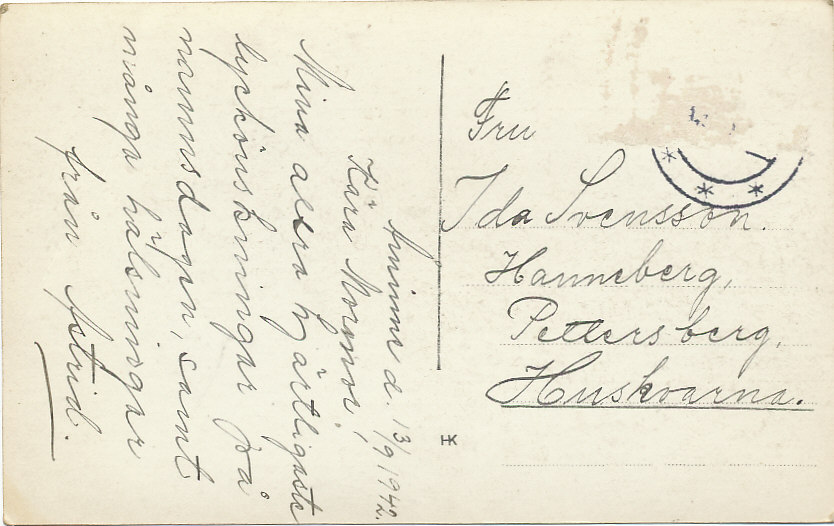 d. 13/9 1942.
Kära Mormor!
Mina allra hjärtligaste
lyckönskningar på
namnsdagen, samt
många hälsningar
från Astrid.
Fru
Ida Svensson.
Hanneberg,
Pettersberg,
Huskvarna.
HK